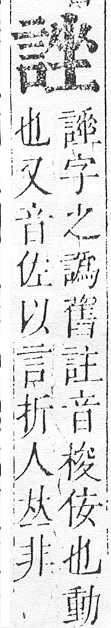 諈字之譌舊註音梭侫也動
也又音佐以言折人𠀤非